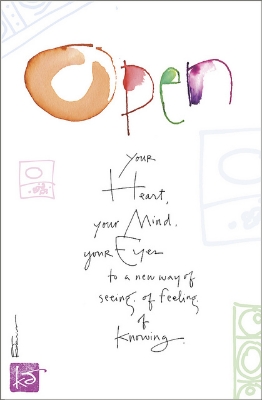 open
your
Heart,
your Mind,
your Eyes
to a new way of
seeing, of feeling,
of
Knowing.